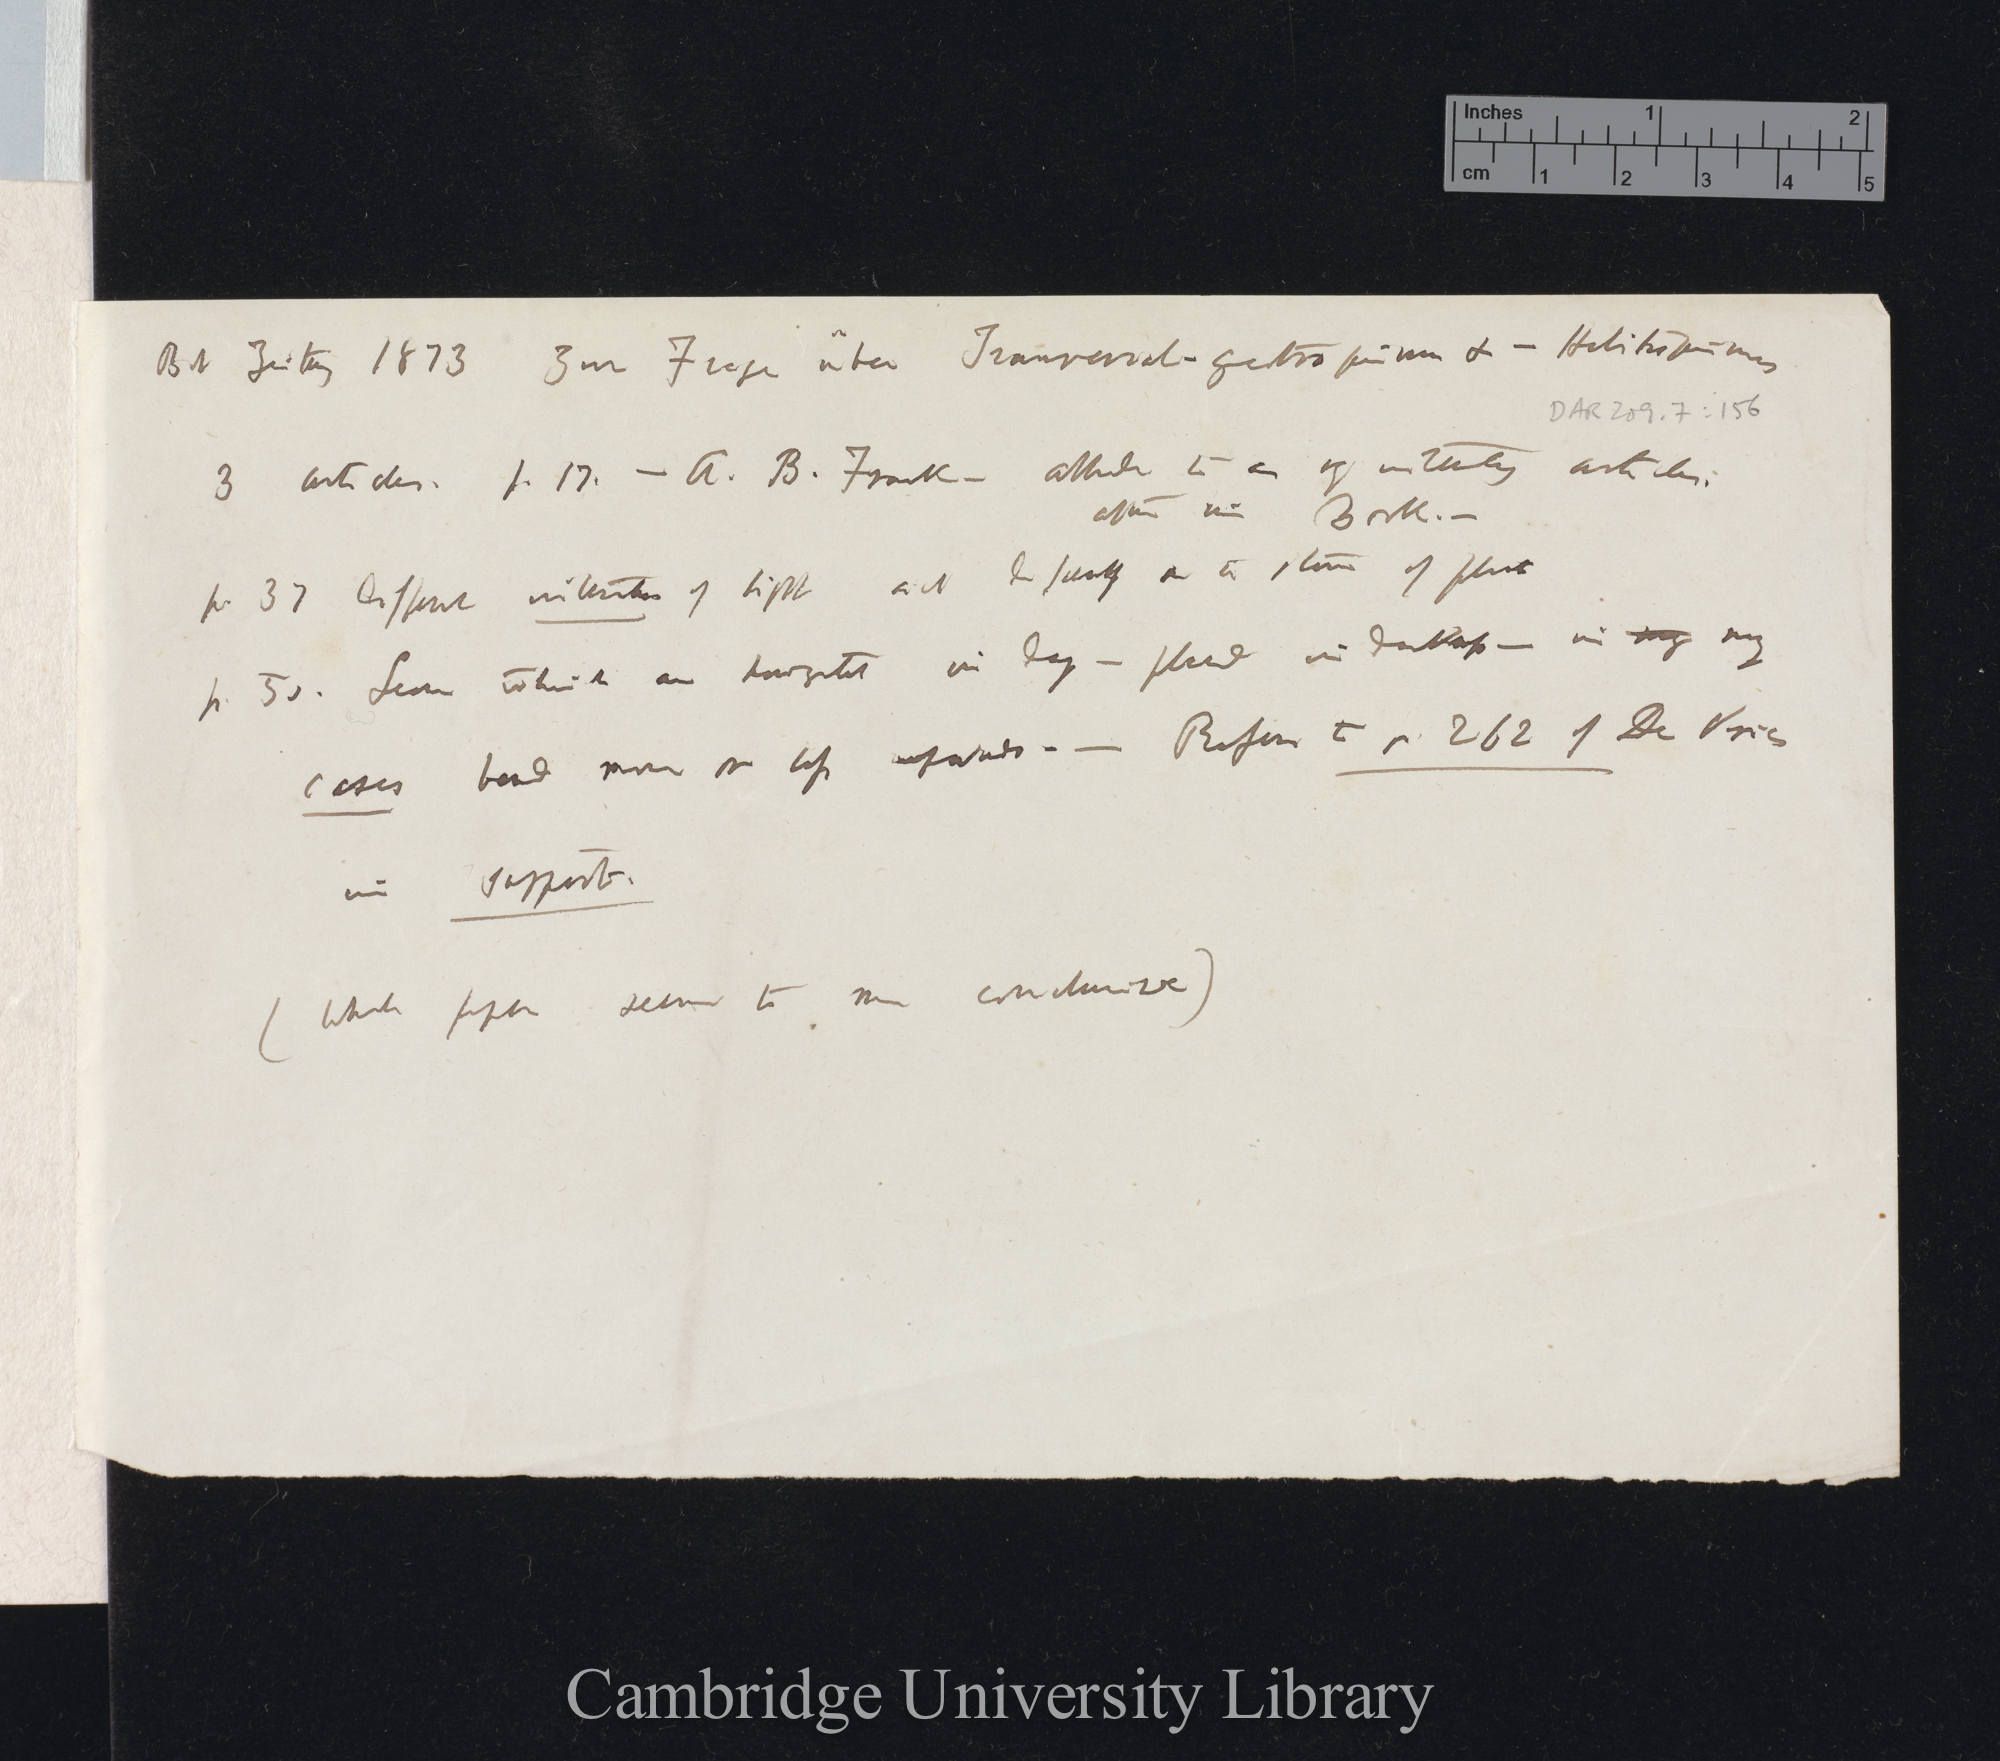 Inches 1 2
cm 1 2 3 4 5
Bot Zeitung 1873 Zur Frage über Transversal-geotropismus & – Heliotropismus
DAR 209.7:156
3 articles. p. 17. — A. B. Frank — to articles:
after in Book. —
p. 37 Different intensities of light act differently on the stem of plant
p. 50. Leaves which are horizontal in day — placed in dark — in my many
cases bend more or less upwards. — Refers to p. 262 of De Vries
in support.
(Whole paper seems to me conclusive)
Cambridge University Library